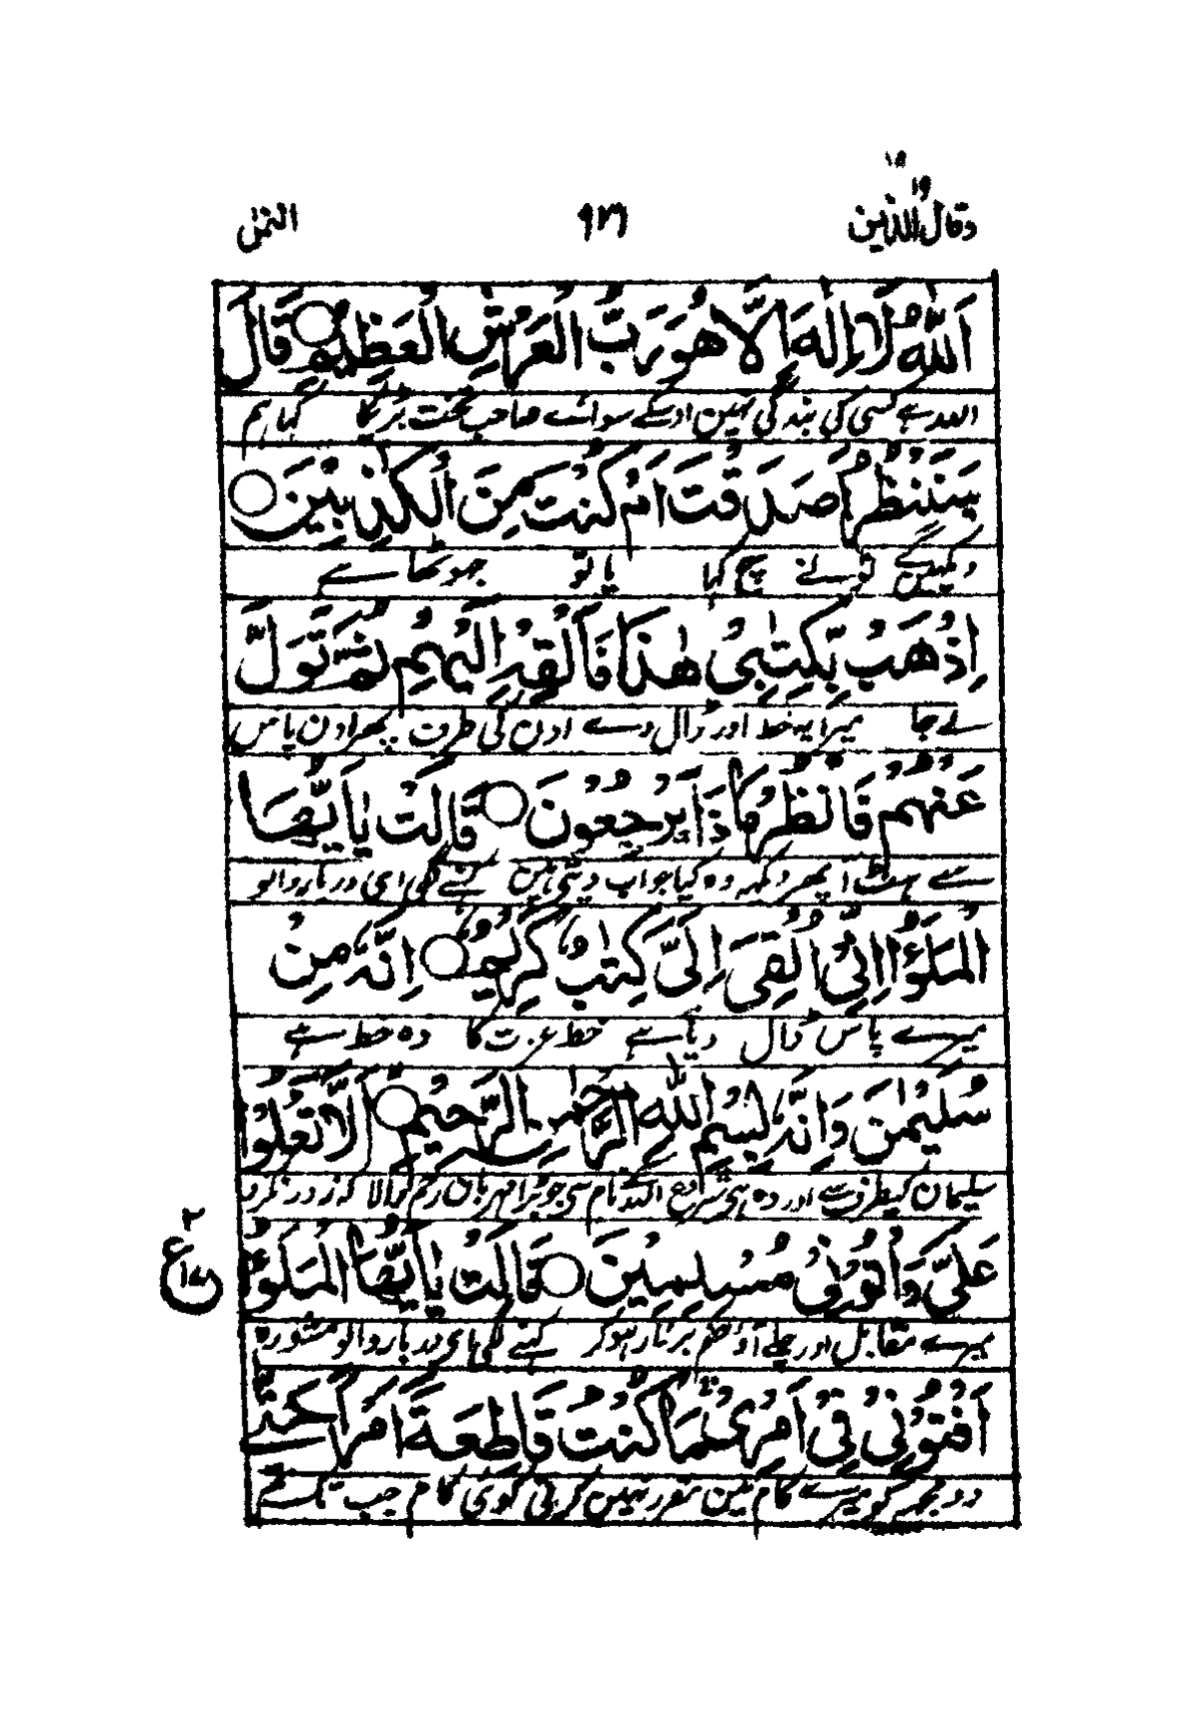 ۱۵
وقال الذین ۱۹ ۹۲۶ النمل
اَللّٰهُ لَاۤ اِلٰهَ اِلَّا هُوَ رَبُّ الْعَرْشِ الْعَظِيْمِ ○ قَالَ
اللہ ہے کسی کی بندگی نہین اوسکے سوائے صاحب تخت بڑیکا کہا ہم
سَنَنْظُرُ اَصَدَقْتَ اَمْ كُنْتَ مِنَ الْكٰذِبِيْنَ ○
دیکھینگے تونے سچ کہا یا تو جھوٹھا ہے
اِذْهَبْ بِّكِتٰبِيْ هٰذَا فَاَلْقِهْ اِلَيْهِمْ ثُمَّ تَوَلَّ
لے جا میرا یہ خط اور ڈال دے اون کی طرف پھر اون پاس
عَنْهُمْ فَانْظُرْ مَا ذَا يَرْجِعُوْنَ ○ قَالَتْ يٰۤاَيُّهَا
سے ہٹ آ پھر دیکھ وہ کیا جواب دیتی ہین کہنے لگی ای دربار والو
الْمَلَؤُا اِنِّيْۤ اُلْقِيَ اِلَيَّ كِتٰبٌ كَرِيْمٌ ○ اِنَّهٗ مِنْ
میرے پاس ڈال دیا ہے خط عزت کا وہ خط ہے
سُلَيْمٰنَ وَاِنَّهٗ بِسْمِ اللّٰهِ الرَّحْمٰنِ الرَّحِيْمِ ○ اَلَّا تَعْلُوْا
سلیمان کیطرف سے اور وہ ہی شروع اللہ کے نام سی جو بڑا مہربان رحم والا کہ زور نکرو
عَلَيَّ وَاْتُوْنِيْ مُسْلِمِيْنَ ○ قَالَتْ يٰۤاَيُّهَا الْمَلَؤُا
۲ ع ۱۷
میرے مقابل اور چلے آؤ حکم بردار ہو کر کہنے لگی ای دربار والو مشورہ
اَفْتُوْنِيْ فِيْۤ اَمْرِيْ مَا كُنْتُ قَاطِعَةً اَمْرًا حَتّٰى
دو مجھ کو میرے کام مین مقرر نہین کرتی کوئی کام جب تک تم